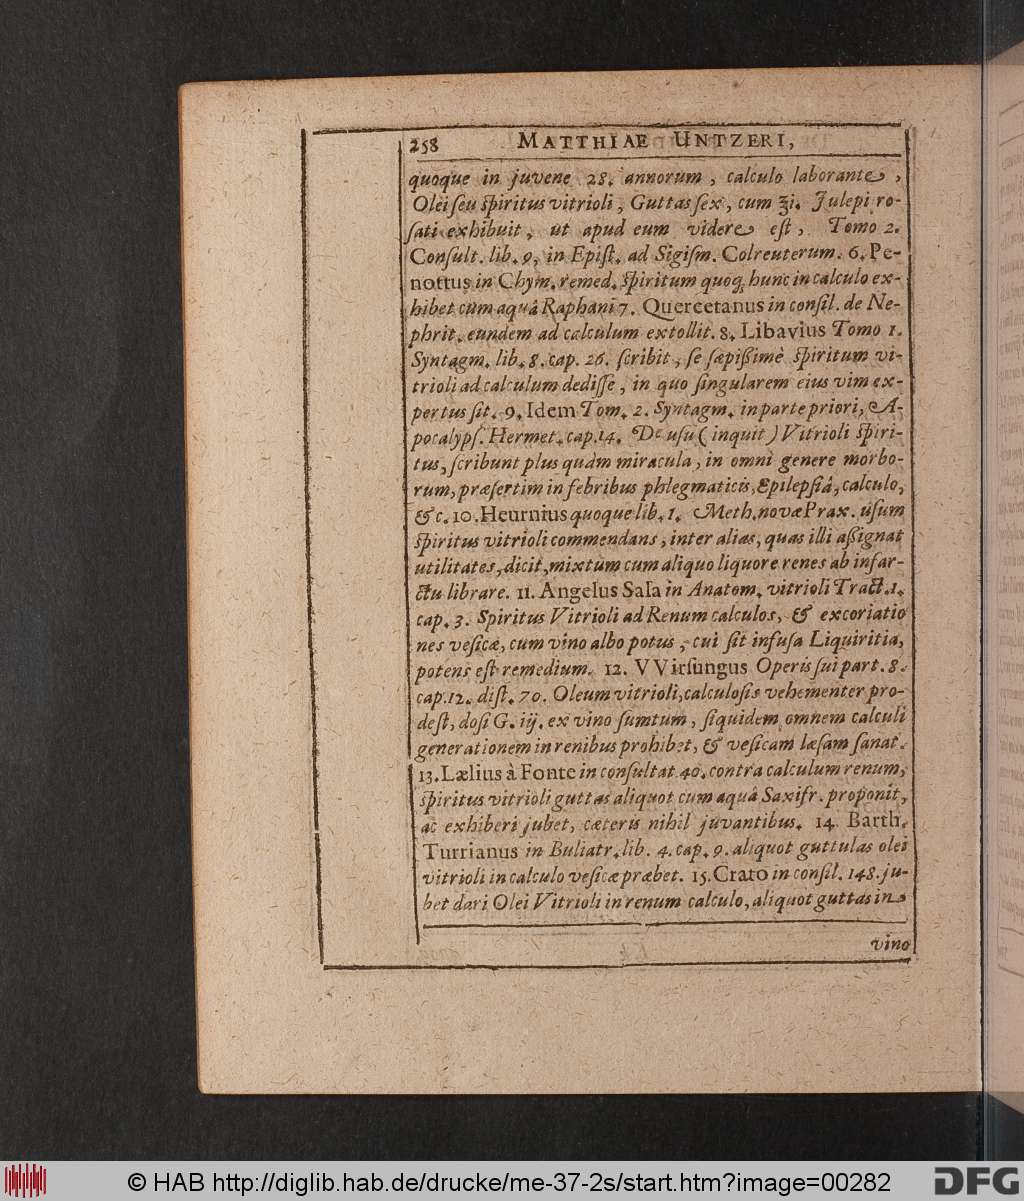 258 MATTHIAE UNTZERI,
quoque in juvene 28. annorum, calculo laborante,
Olei ſeu ſpiritus vitrioli, Guttas ſex, cum ʒi. Julepi ro-
ſati exhibuit, ut apud eum videre eſt, Tomo 2.
Conſult. lib. 9, in Epiſt. ad Sigiſm. Colreuterum. 6. Pe-
nottus in Chym. remed. ſpiritum quoq; hunc in calculo ex-
hibet cum aquâ Raphani 7. Quercetanus in conſil. de Ne-
phrit. eundem ad calculum extollit. 8. Libavius Tomo 1.
Syntagm. lib. 8. cap. 26. ſcribit, ſe ſæpißimè ſpiritum vi-
trioli ad calculum dediſſe, in quo ſingularem eius vim ex-
pertus ſit. 9. Idem Tom. 2. Syntagm. in parte priori, A-
pocalypſ. Hermet. cap. 14. De uſu (inquit) Vitrioli ſpiri-
tus, ſcribunt plus quàm miracula, in omni genere morbo-
rum, præſertim in febribus phlegmaticis, Epilepſiâ, calculo,
&c. 10. Heurnius quoque lib. 1. Meth. novæ Prax. uſum
ſpiritus vitrioli commendans, inter alias, quas illi aßignat
utilitates, dicit, mixtum cum aliquo liquore renes ab infar-
ctu librare. 11. Angelus Sala in Anatom. vitrioli Tract. 1.
cap. 3. Spiritus Vitrioli ad Renum calculos, & excoriatio
nes veſicæ, cum vino albo potus, cui ſit infuſa Liquiritia,
potens eſt remedium. 12. VVirſungus Operis ſui part. 8.
cap. 12. diſt. 70. Oleum vitrioli, calculoſis vehementer pro-
deſt, doſi G. iij. ex vino ſumtum, ſiquidem omnem calculi
generationem in renibus prohibet, & veſicam læſam ſanat.
13. Lælius à Fonte in conſultat. 40. contra calculum renum,
ſpiritus vitrioli guttas aliquot cum aquâ Saxifr. proponit,
ac exhiberi jubet, cæteris nihil juvantibus. 14. Barth.
Turrianus in Buliatr. lib. 4. cap. 9. aliquot guttulas olei
vitrioli in calculo veſicæ præbet. 15. Crato in conſil. 148. ju-
bet dari Olei Vitrioli in renum calculo, aliquot guttas in
vino
© HAB http://diglib.hab.de/drucke/me-37-2s/start.htm?image=00282
DFG